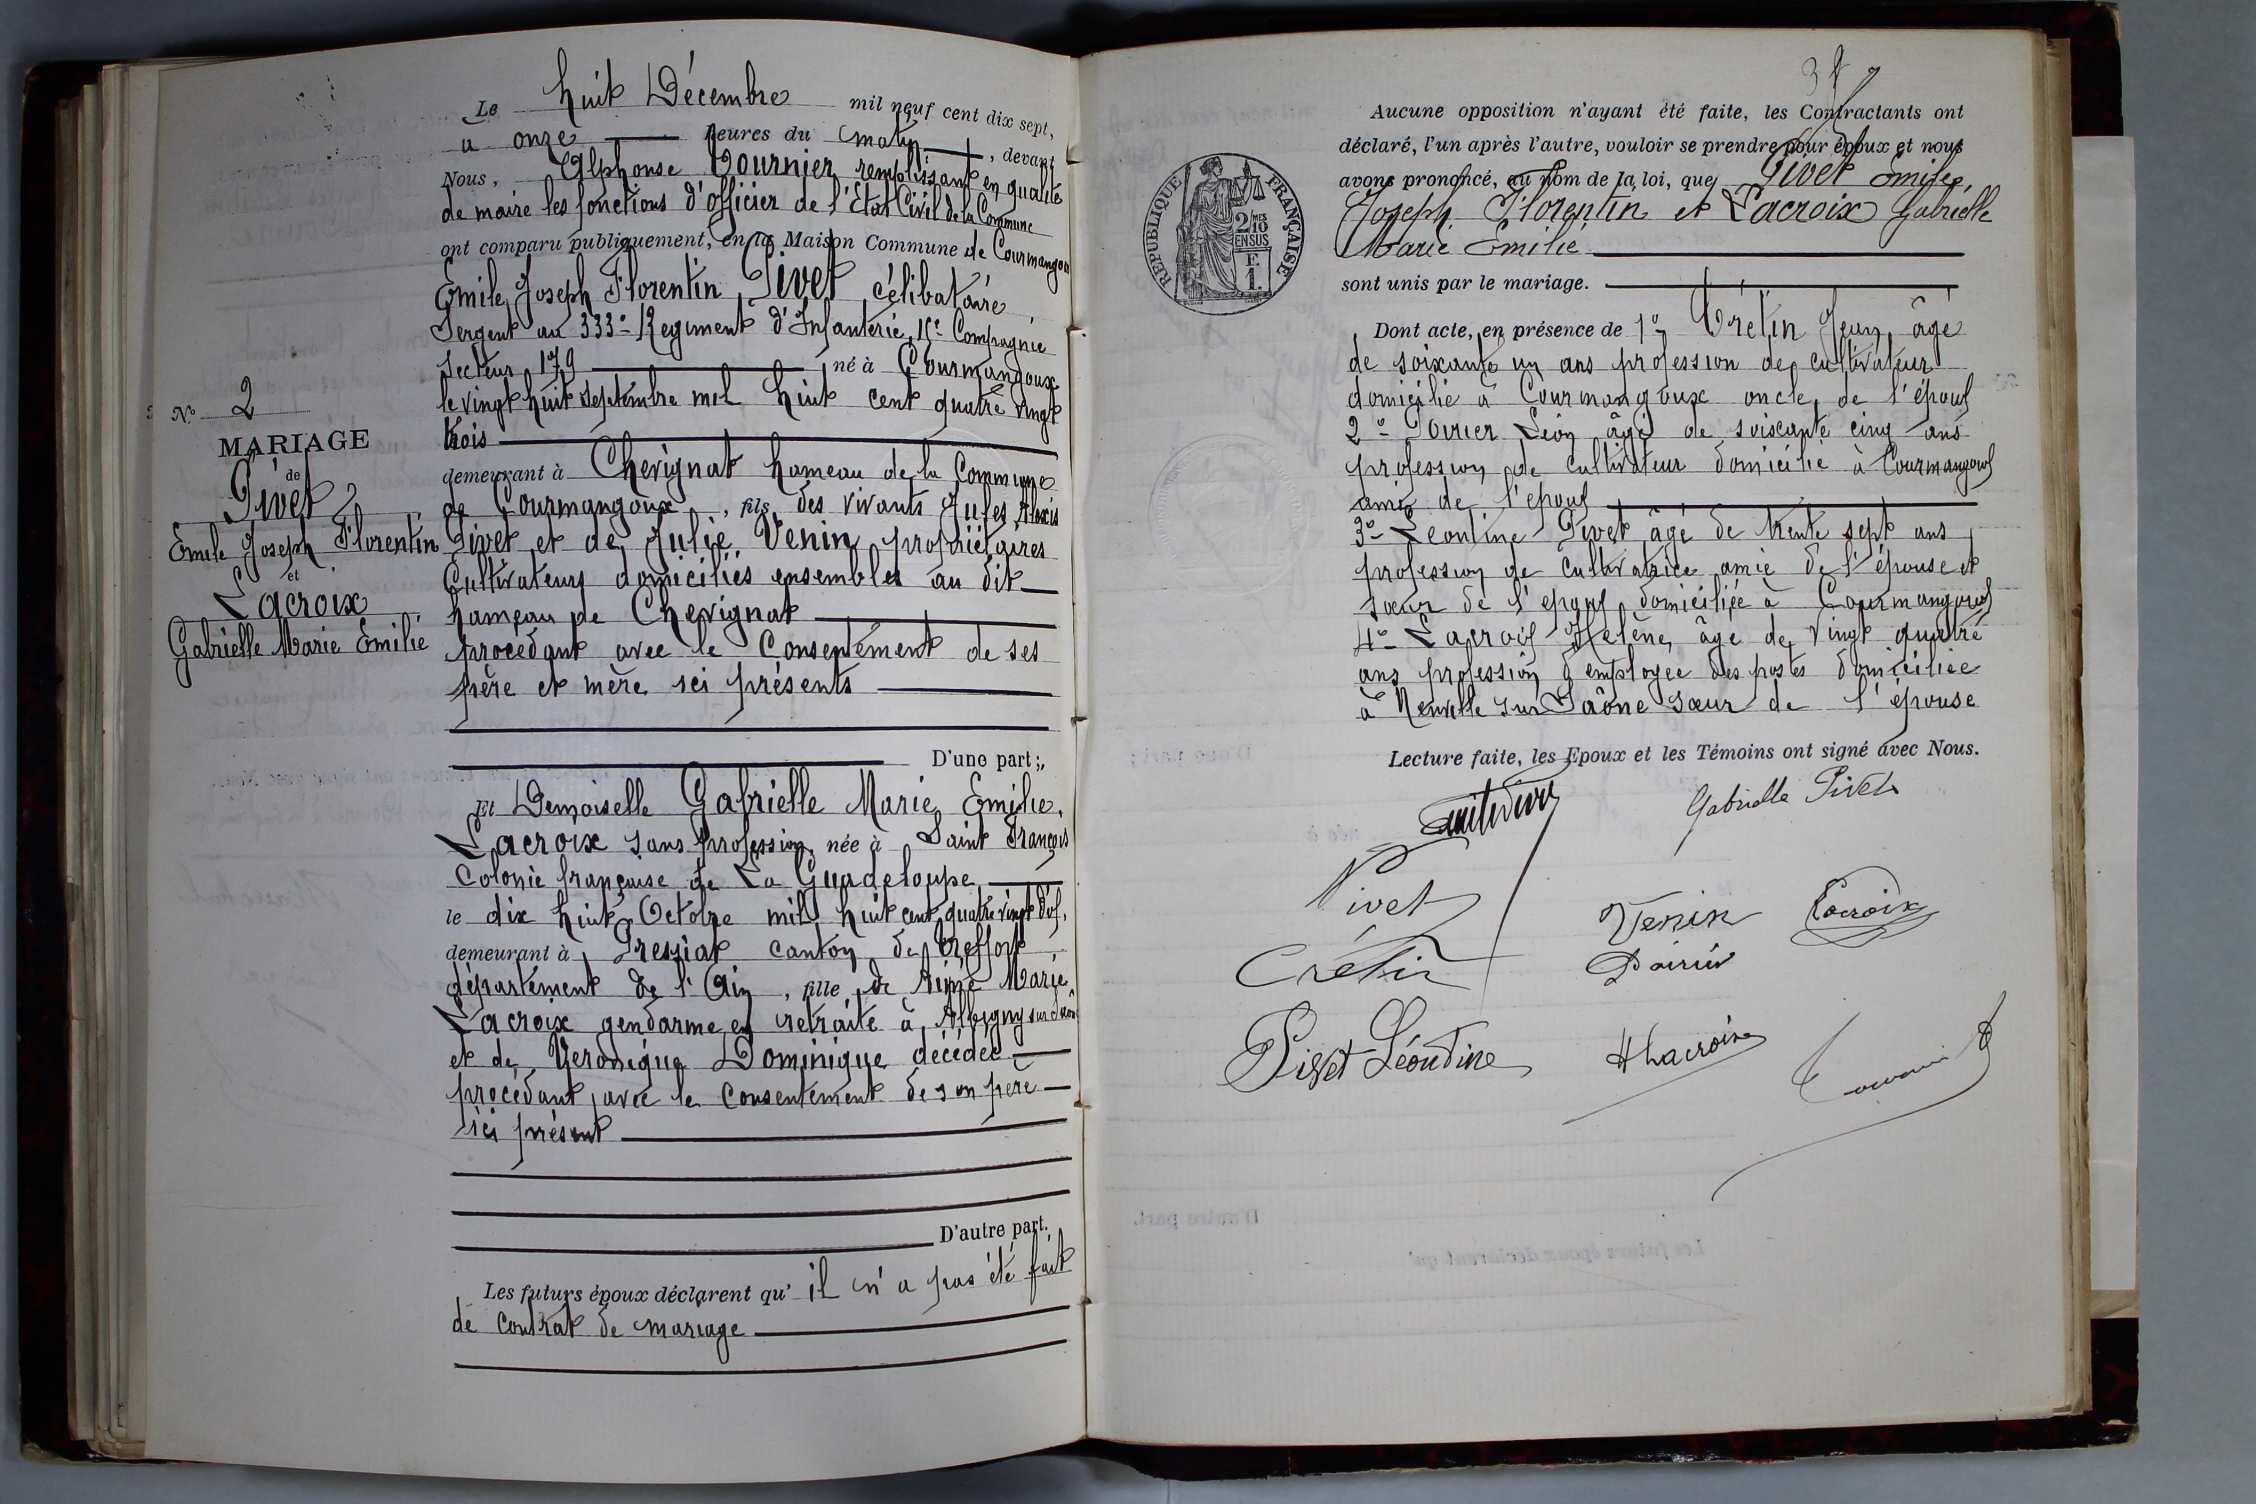 Le huit Décembre mil neuf cent dix sept,
à onze heures du matin, devant
Nous, Alphonse Tournier remplissant en qualité
de maire les fonctions d'officier de l'Etat Civil de la Commune
ont comparu publiquement, en la Maison Commune de Courmangoux
Emile Joseph Florentin Pivet célibataire
Sergent au 333e Régiment d'Infanterie, Compagnie
Secteur 179 né à Courmangoux
le vingt huit septembre mil huit cent quatre vingt
trois
demeurant à Chevignat hameau de la Commune
de Courmangoux, fils des vivants Jules Alexis
Pivet et de Julie Venin propriétaires
Cultivateurs domiciliés ensembles au dit
hameau de Chevignat
procédant avec le Consentement de ses
père et mère ici présents
D'une part;
Et Demoiselle Gabrielle Marie Emilie
Lacroix sans profession née à Saint François
Colonie française de La Guadeloupe
le dix huit Octobre mil huit cent quatre vingt
demeurant à Pressiat canton de Treffort
département de l'Ain, fille de Aimé Marie
Lacroix gendarme en retraite à Albigny sur Saône
et de Véronique Dominique décédée
procédant avec le Consentement de son père
ici présent
D'autre part.
Les futurs époux déclarent qu'il n'a pas été fait
de contrat de mariage
N° 2
MARIAGE
de
Pivet
Emile Joseph Florentin
et
Lacroix
Gabrielle Marie Emilie
Aucune opposition n'ayant été faite, les Contractants ont
déclaré, l'un après l'autre, vouloir se prendre pour époux et nous
avons prononcé, au nom de la loi, que Pivet Emile
Joseph Florentin et Lacroix Gabrielle
Marie Emilie
sont unis par le mariage.
RÉPUBLIQUE FRANÇAISE
2/10 MES
EN SUS
E
1.
Dont acte, en présence de 1° Crétin Jean âgé
de soixante un ans profession de cultivateur
domicilié à Courmangoux oncle de l'époux
2° Poirier Léon âgé de soixante cinq ans
profession de cultivateur domicilié à Courmangoux
ami de l'époux
3° Léontine Pivet âgé de trente sept ans
profession de cultivatrice amie de l'épouse et
sœur de l'époux domiciliée à Courmangoux
4° Lacroix Hélène âgé de vingt quatre
ans profession d'employée des postes domiciliée
à Neuville sur Saône sœur de l'épouse
Lecture faite, les Epoux et les Témoins ont signé avec Nous.
Gabrielle Pivet
Pivet
Venin
Lacroix
Crétin
Poirier
Pivet Léontine
H Lacroix